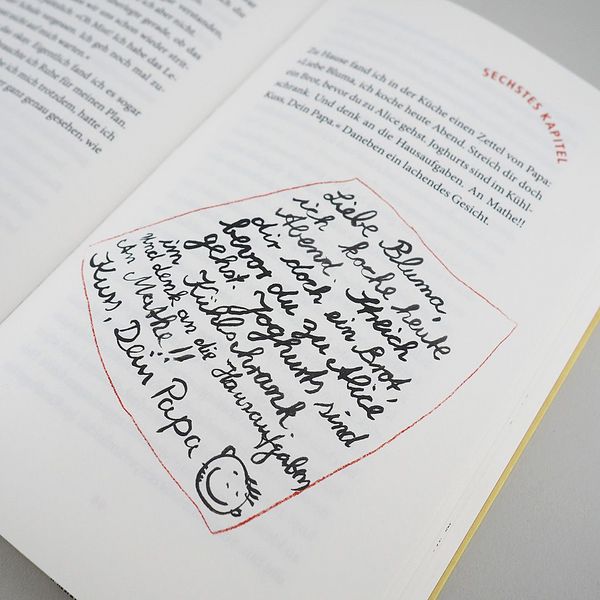 verstanden,
gerade, ob das
schon wieder strit-
»Oh Mist! Ich habe das Le-
vergessen. Ich geh noch mal zu-
nicht auf mich warten.«
okay. Eigentlich fand ich es sogar
ich Ruhe für meinen Plan.
ich mich trotzdem, hatte ich
er ganz genau gesehen, wie
SECHSTES KAPITEL
Zu Hause fand ich in der Küche einen Zettel von Papa:
»Liebe Bluma, ich koche heute Abend. Streich dir doch
ein Brot, bevor du zu Alice gehst. Joghurts sind im Kühl-
schrank. Und denk an die Hausaufgaben. An Mathe!!
Kuss, Dein Papa.« Daneben ein lachendes Gesicht.
Liebe Bluma,
ich koche heute
Abend. Streich
dir doch ein Brot,
bevor du zu Alice
gehst. Joghurts sind
im Kühlschrank
Und denk an die Hausaufgaben,
An Mathe!!
Kuss, Dein Papa